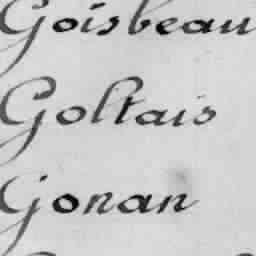 Goisbeau
Goltais
Gonan